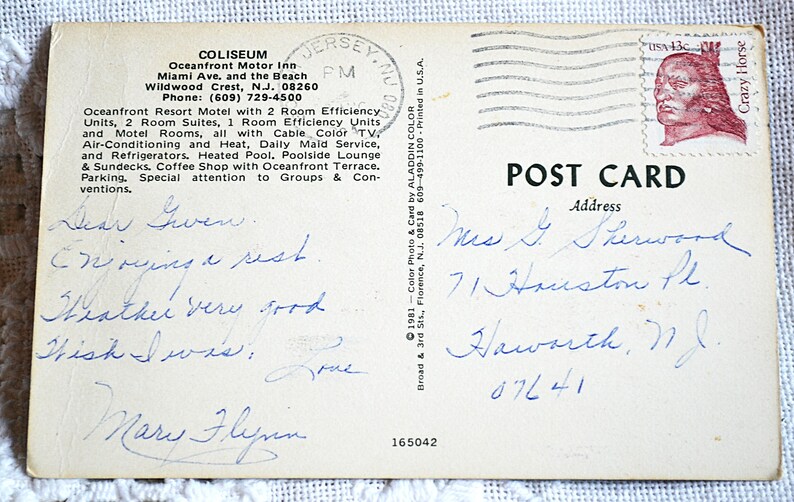 COLISEUM
Oceanfront Motor Inn
Miami Ave. and the Beach
Wildwood Crest, N.J. 08260
Phone: (609) 729-4500
Oceanfront Resort Motel with 2 Room Efficiency
Units, 2 Room Suites, 1 Room Efficiency Units
and Motel Rooms, all with Cable Color TV,
Air-Conditioning and Heat, Daily Maid Service,
and Refrigerators. Heated Pool. Poolside Lounge
& Sundecks. Coffee Shop with Oceanfront Terrace.
Parking. Special attention to Groups & Con-
ventions.
Dear Gwen.
Enjoying a rest.
Weather very good
Wish I was. Love
Mary Flynn
© 1981 — Color Photo & Card by ALADDIN COLOR
Broad & 3rd Sts., Florence, N.J. 08518 609-499-1100 • Printed in U.S.A.
165042
JERSEY, NJ 080
PM
USA 13c
Crazy Horse
POST CARD
Address
Mrs G. Sherwood
71 Houston Pl.
Haworth, N.J.
07641